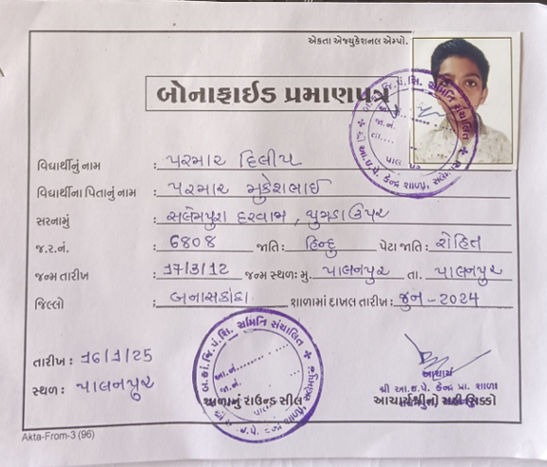 એકતા એજ્યુકેશનલ એમ્પો.
બોનાફાઇડ પ્રમાણપત્ર
વિદ્યાર્થીનું નામ : પરમાર દિલીપ
વિદ્યાર્થીના પિતાનું નામ : પરમાર મુકેશભાઈ
સરનામું : સલેમપુરા દરવાજા,
જ.ર.નં. : 6808 જાતિ : હિન્દુ પેટા જાતિ : રોહિત
જન્મ તારીખ : 17/3/12 જન્મ સ્થળ : મુ. પાલનપુર તા. પાલનપુર
જિલ્લો : બનાસકાંઠા શાળામાં દાખલ તારીખ : જુન - 2024
તારીખ : 16/1/25
સ્થળ : પાલનપુર
શાળાનું રાઉન્ડ સીલ
આચાર્ય
શ્રી આ.ઇ.પે. કેન્દ્ર પ્રા. શાળા
આચાર્યશ્રીનો સહી સિક્કો
Akta-From-3 (96)